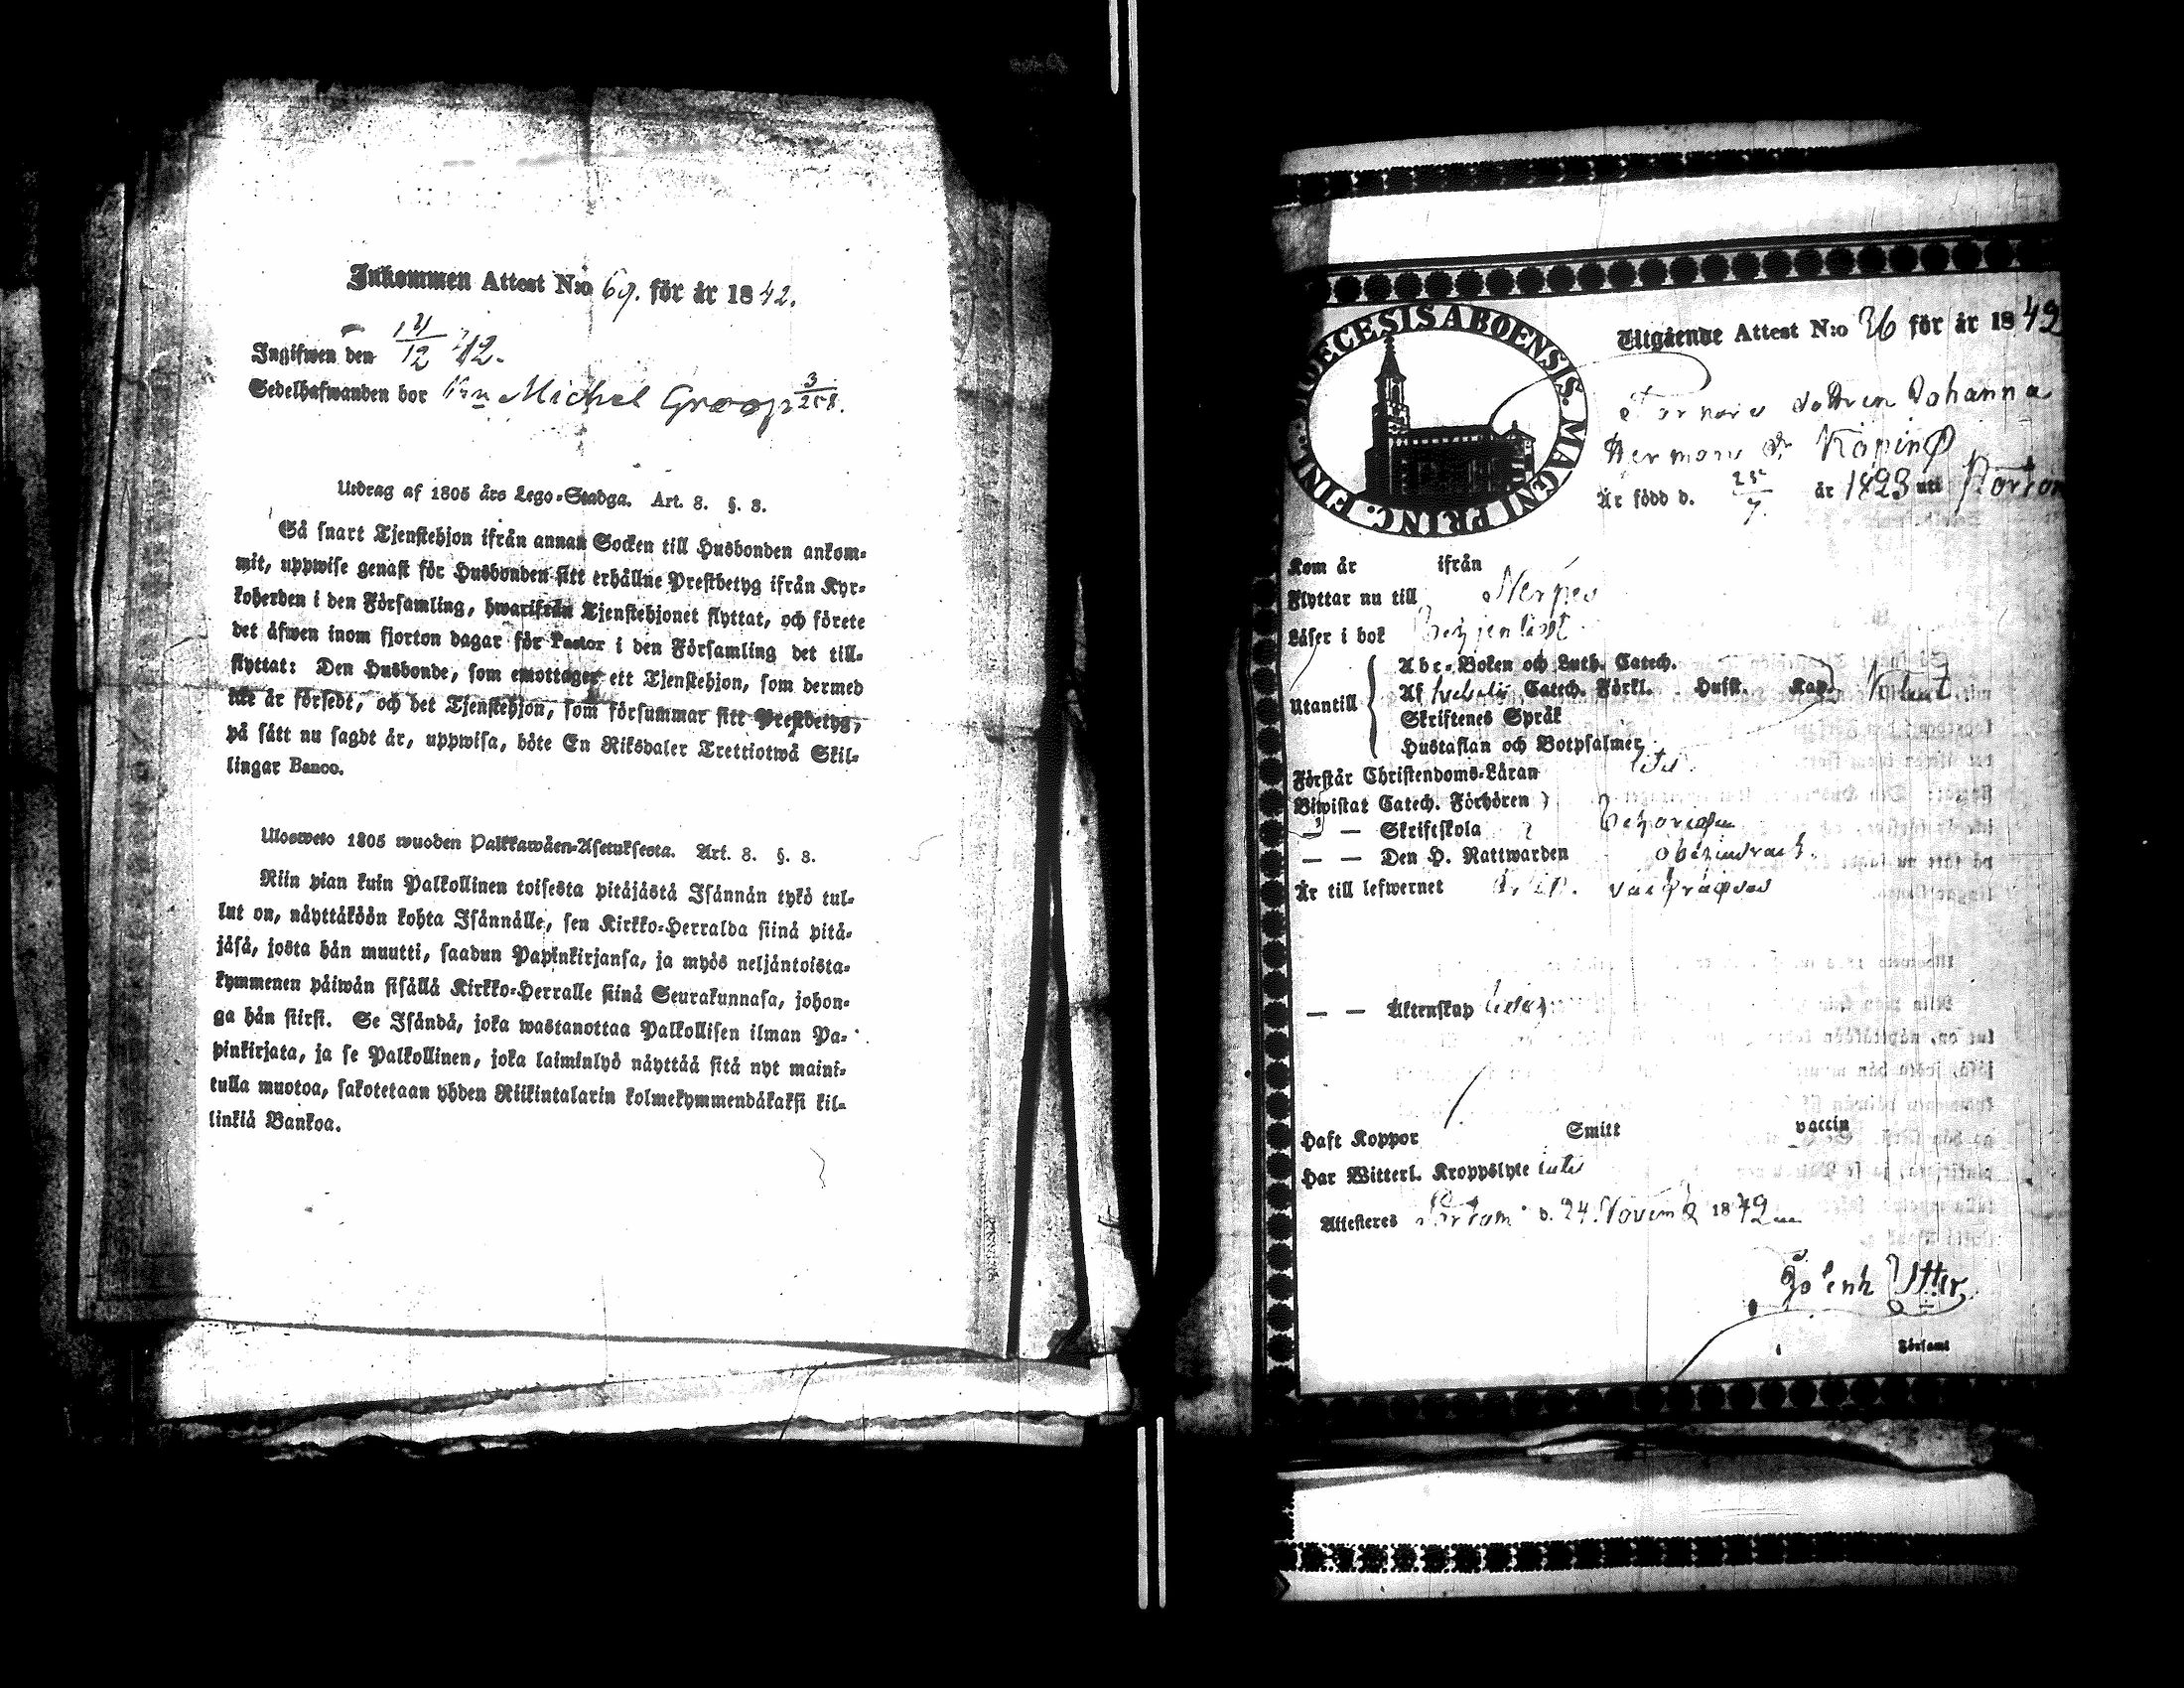 Inkommen Attest N:o 69. för år 1842.
Ingifwen den 14/12 42.
Sedelhafwanden bor Michel Groop 3/258.
Utdrag af 1805 års Lego-Stadga. Art. 8. §. 3.
Så snart Tjenstehjon ifrån annan Socken till Husbonden ankom-
mit, uppwise genast för Husbonden sitt erhållne Prestbetyg ifrån Kyr-
koherden i den Församling, hwarifrån Tjenstehjonet flyttat, och förete
det äfwen inom fjorton dagar för Pastor i den Församling det till-
flyttat: Den Husbonde, som emottager ett Tjenstehjon, som dermed
ikke är försedt, och det Tjenstehjon, som försummar sitt Prestbetyg,
på sätt nu sagdt är, uppwisa, böte En Riksdaler Trettiotwå Skil-
lingar Banco.
Ulosweto 1805 wuoden Palkkawäen-Asetuksesta. Art. 8. §. 3.
Niin pian kuin Palkollinen toisesta pitäjästä Isännän tykö tul-
lut on, näyttäköön kohta Isännälle, sen Kirkko-Herralda siinä pitä-
jäsä, josta hän muutti, saadun Papinkirjansa, ja myös neljäntoista-
kymmenen päiwän sisällä Kirkko-Herralle siinä Seurakunnasa, johon-
ga hän siirsi. Se Isändä, joka wastanottaa Palkollisen ilman Pa-
pinkirjata, ja se Palkollinen, joka laiminlyö näyttää sitä nyt maini-
tulla muotoa, sakotetaan yhden Riikintalarin kolmekymmendäkaksi kil-
linkiä Bankoa.
DIOECESIS ABOENSIS. MAGNI PRINC. FINL.
Utgående Attest N:o 36 för år 1842
dottren Johanna
Hermans dr Köping
Är född d. 25/7 år 1823 uti Pörtom
Kom år ifrån
Flyttar nu till Nerpes
Läser i bok
Utantill
Abc-Boken och Luth. Catech.
Af Catech. Förkl. Hust. Kap.
Skriftenes Språk
Hustaflan och Botpsalmer
Förstår Christendoms-Läran
Biwistat Catech. Förhören
— — Skriftskola
— — Den H. Nattwarden
Är till lefwernet
— — Äktenskap ledig
Haft Koppor Smitt vaccin
Har Witterl. Kroppslyte
Attesteras Pörtom d. 24 Novemb 1842
Utter
Församl